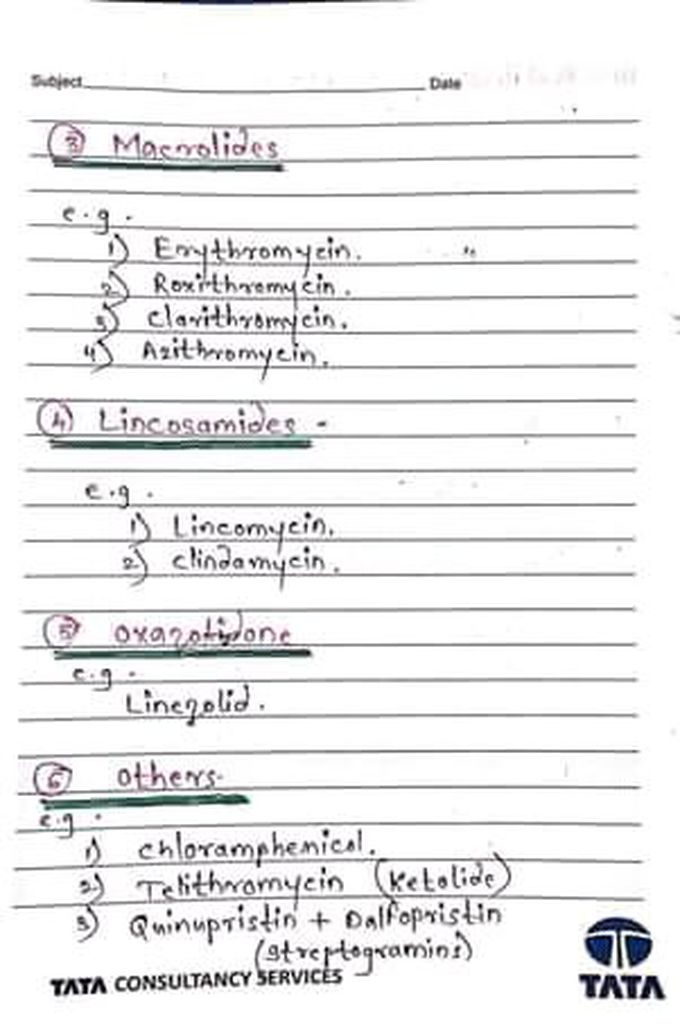 Subject Date
③ Macrolides
e.g.
1) Erythromycin.
2) Roxithromycin.
3) Clarithromycin.
4) Azithromycin.
④ Lincosamides -
e.g.
1) Lincomycin.
2) Clindamycin.
⑤ Oxazolidone
e.g.
Linezolid.
⑥ Others-
e.g.
1) Chloramphenicol.
2) Telithromycin (Ketolide)
3) Quinupristin + Dalfopristin
(Streptogramins)
TATA CONSULTANCY SERVICES
TATA